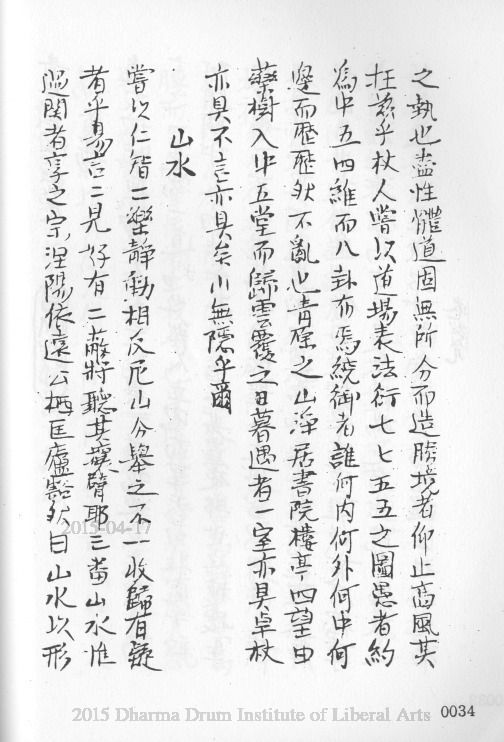 之執也盡性體道固無所分而造勝境者仰止高風其
在茲乎杖人嘗以道場表法衍七七五五之圖愚者約
為中五四維而八卦布焉繞御者誰何內何外何中何
邊而歷歷然不亂也青原之山淨居書院樓亭四望由
藥樹入中五堂而歸雲覆之日暮遇者一室亦具卓杖
亦具不言亦具矣小無隱乎爾
山水
嘗以仁智二樂靜動相反尼山分舉之不一收歸有疑
者乎易言二見好有二蔽將聽其寞臂耶三番山水惟
過關者享之宗涅陽依遠公栖匡廬豁然曰山水以形
2015-04-17
2015 Dharma Drum Institute of Liberal Arts
0034